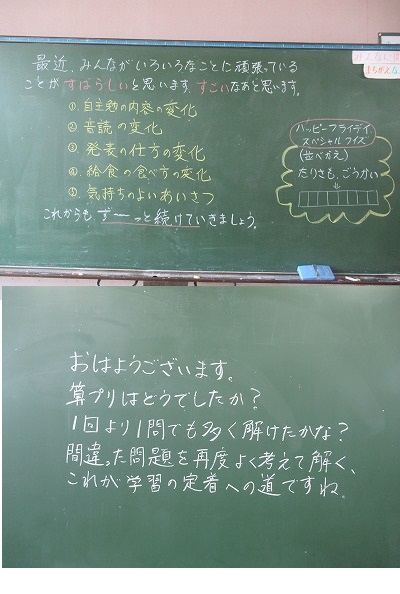 最近、みんながいろいろなことに頑張っている
ことがすばらしいと思います。すごいなあと思います。
① 自主勉の内容の変化
② 音読の変化
③ 発表の仕方の変化
④ 給食の食べ方の変化
⑤ 気持ちのよいあいさつ
これからも、ず〜〜っと続けていきましょう。
ハッピーフライデイ
スペシャルクイズ
(並べかえ)
たりさも、ごうかい
↓
おはようございます。
算プリはどうでしたか?
1回より1問でも多く解けたかな?
間違った問題を再度よく考えて解く、
これが学習の定着への道ですね。